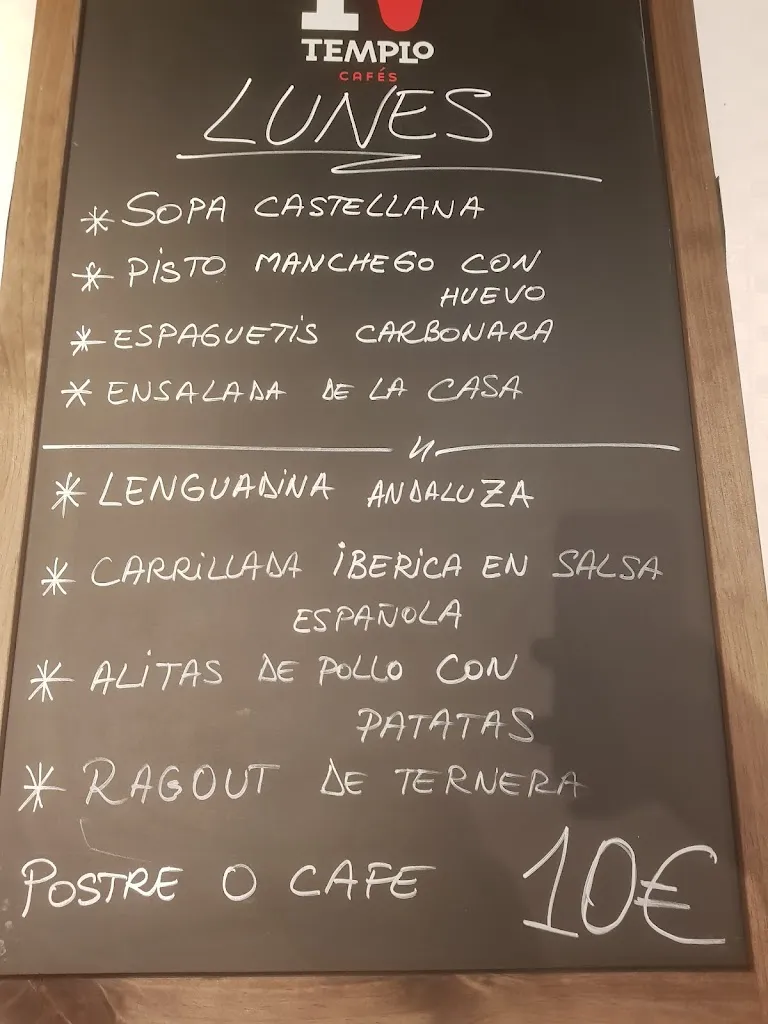 TEMPLO
CAFÉS
LUNES
* SOPA CASTELLANA
* PISTO MANCHEGO CON
HUEVO
* ESPAGUETIS CARBONARA
* ENSALADA DE LA CASA
* LENGUADINA ANDALUZA
* CARRILLADA IBERICA EN SALSA
ESPAÑOLA
* ALITAS DE POLLO CON
PATATAS
* RAGOUT DE TERNERA
POSTRE O CAFE 10€